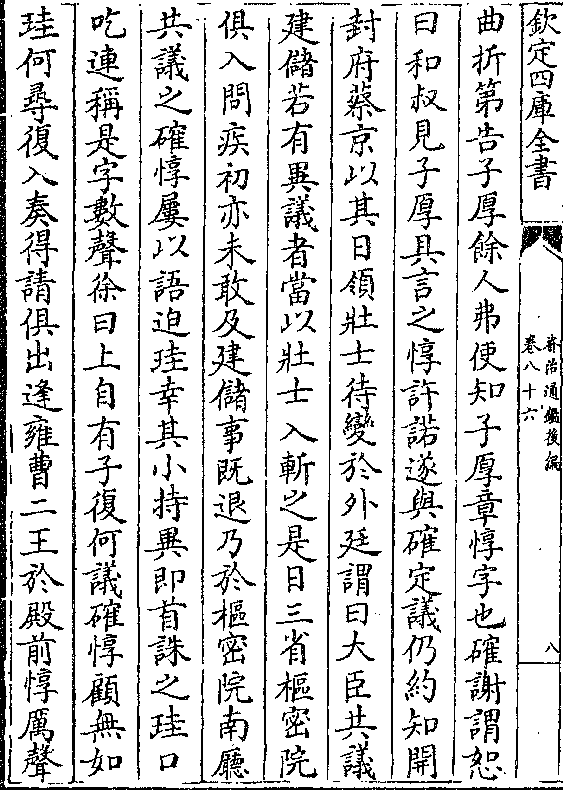 欽定四庫全書
資治通鑑後編
卷八十六
八
曲折第告子厚餘人弗使知子厚章惇字也確謝謂恕
曰和叔見子厚具言之惇許諾遂與確定議仍約知開
封府蔡京以其日領壯士待變於外廷謂曰大臣共議
建儲若有異議者當以壯士入斬之是日三省樞密院
俱入問疾初亦未敢及建儲事既退乃於樞密院南廳
共議之確惇屢以語迫珪幸其小持異即首誅之珪口
吃連稱是字數聲徐曰上自有子復何議確惇顧無如
珪何尋復入奏得請俱出逢雍曹二王於殿前惇厲聲